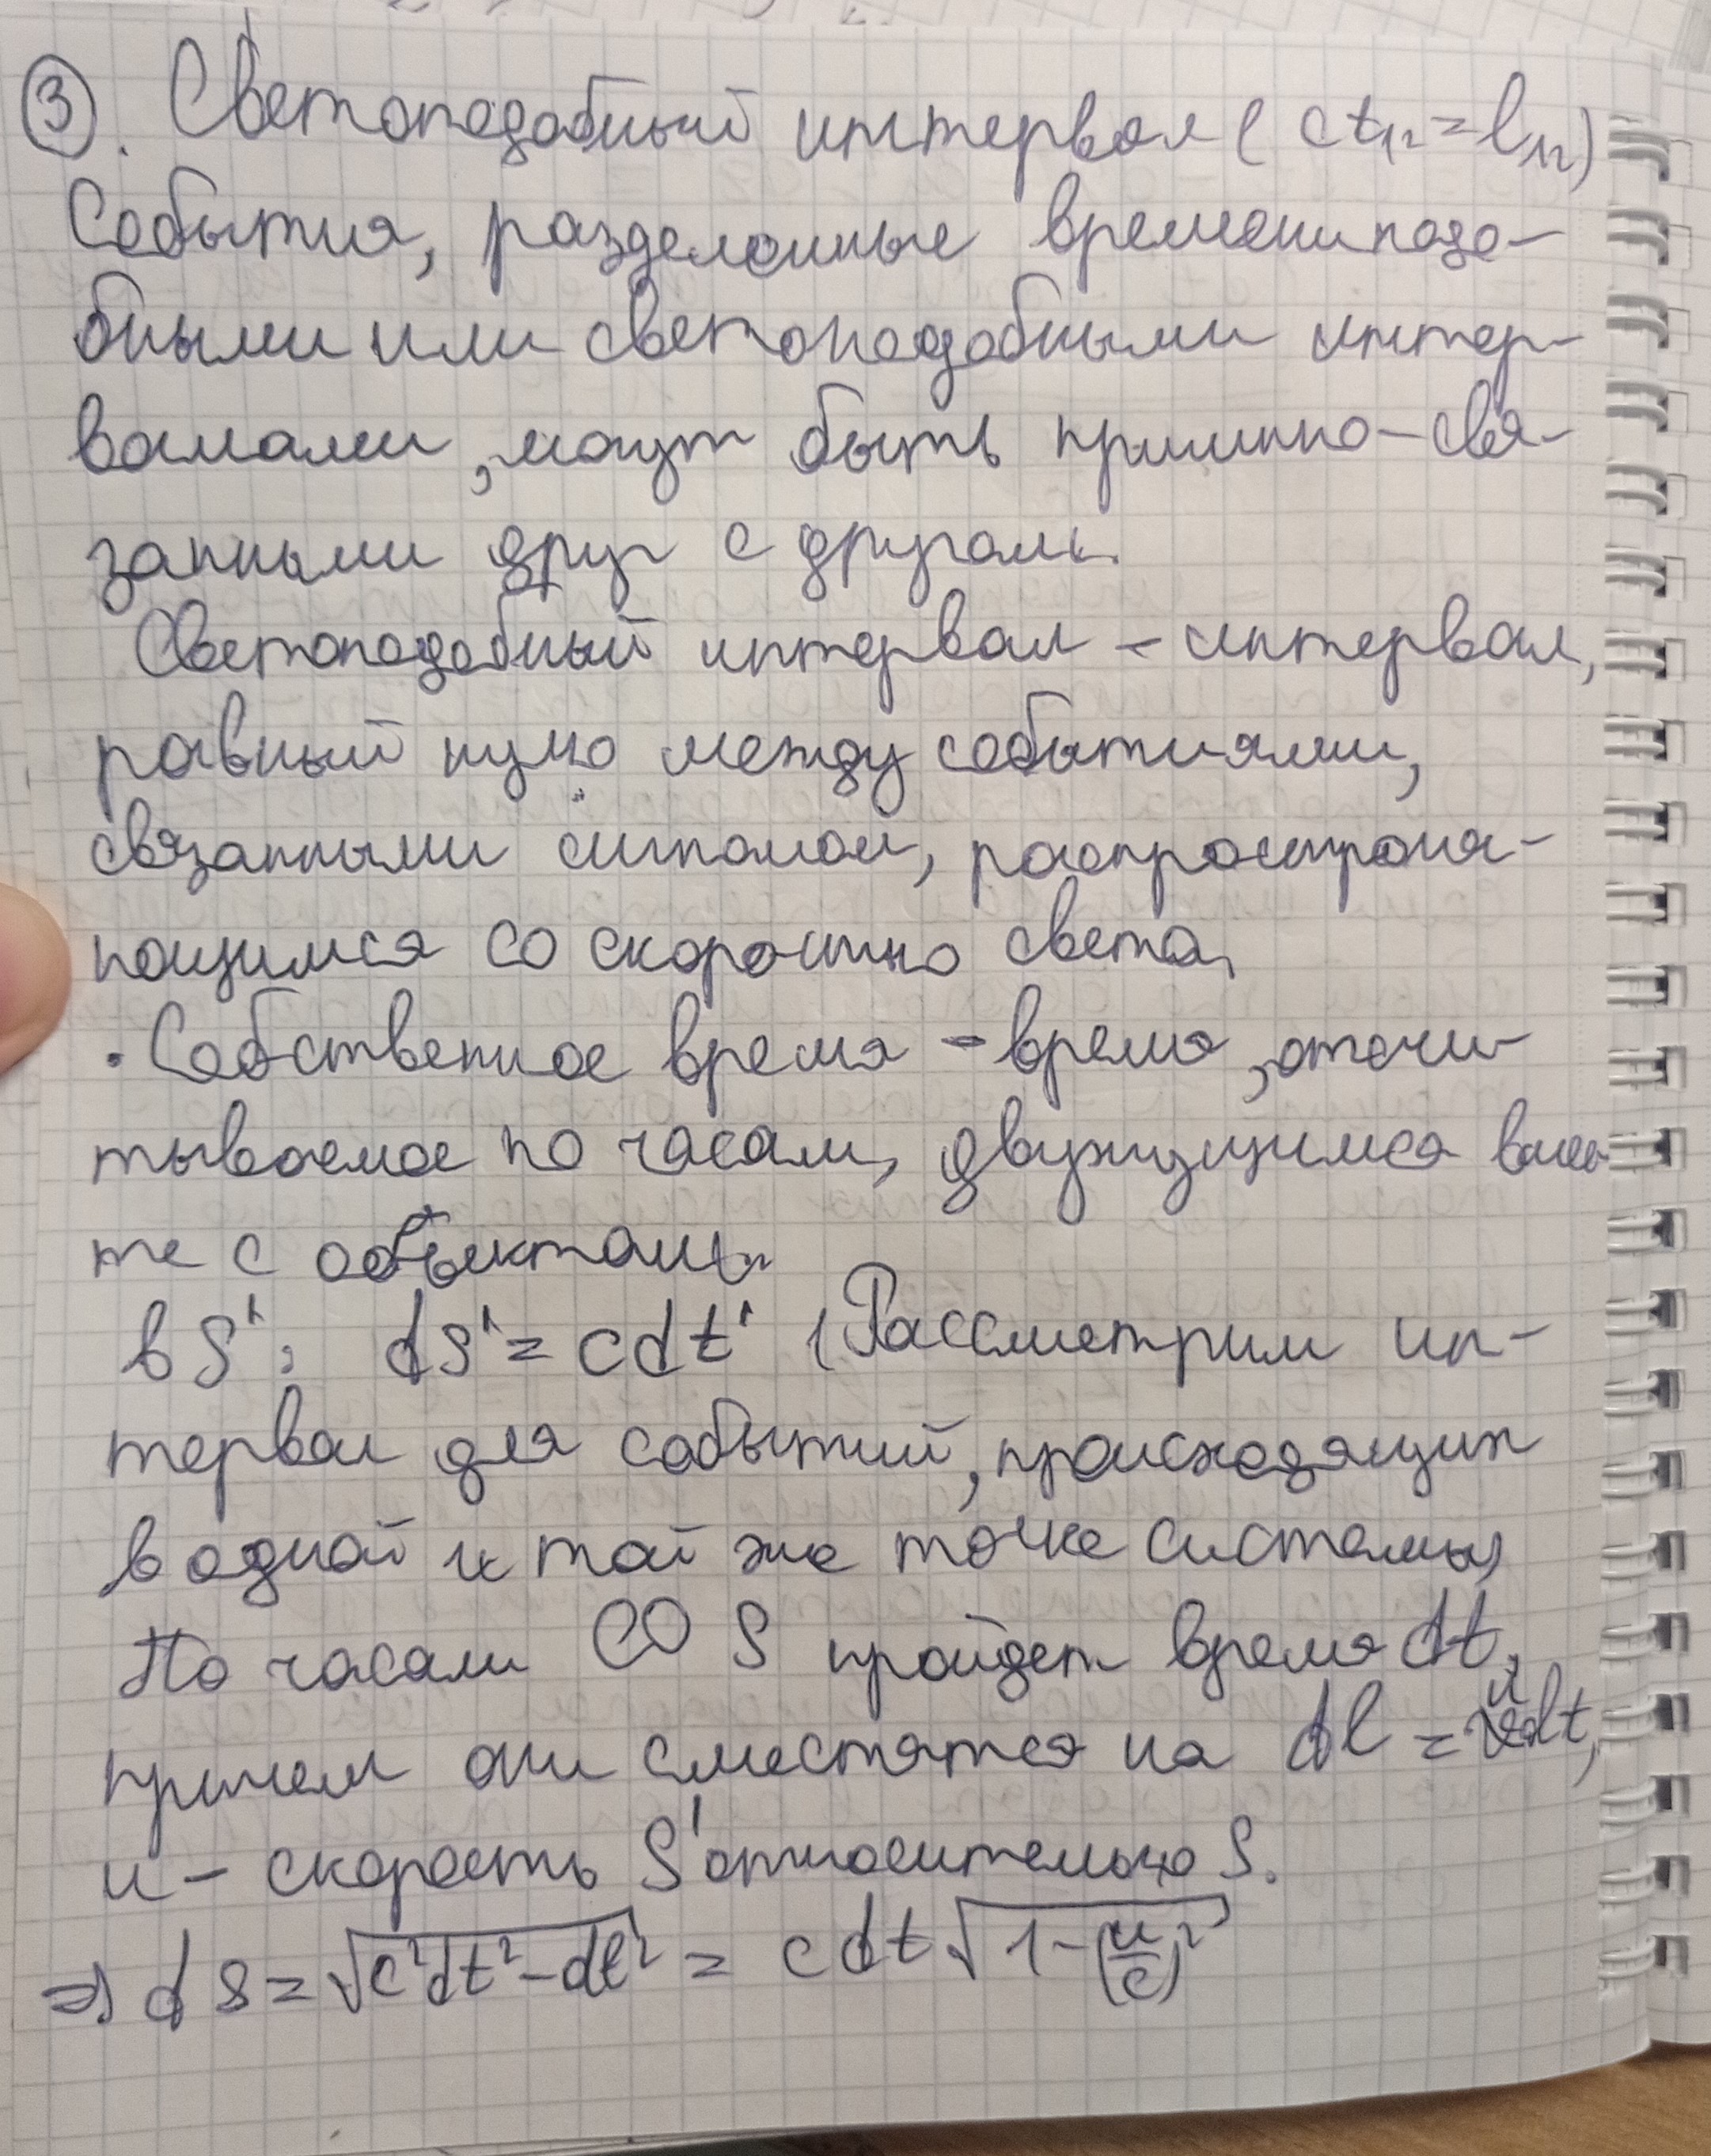 ③. Светоподобный интервал (ct₁₂=l₁₂)
События, разделенные времениподо-
бными или светоподобными интер-
валами, могут быть причинно-свя-
занными друг с другом.
Светоподобный интервал - интервал,
равный нулю между событиями,
связанными сигналом, распространя-
ющимся со скоростью света.
• Собственное время - время, отсчи-
тываемое по часам, движущимся вмес-
те с объектом.
в S': ds' = cdt' (Рассмотрим ин-
тервал для событий, происходящих
в одной и той же точке системы)
По часам СО S пройдет время dt,
причем они сместятся на dl = udt,
u - скорость S' относительно S.
=> ds = √(c²dt²-dl²) = cdt√(1-(u/c)²)